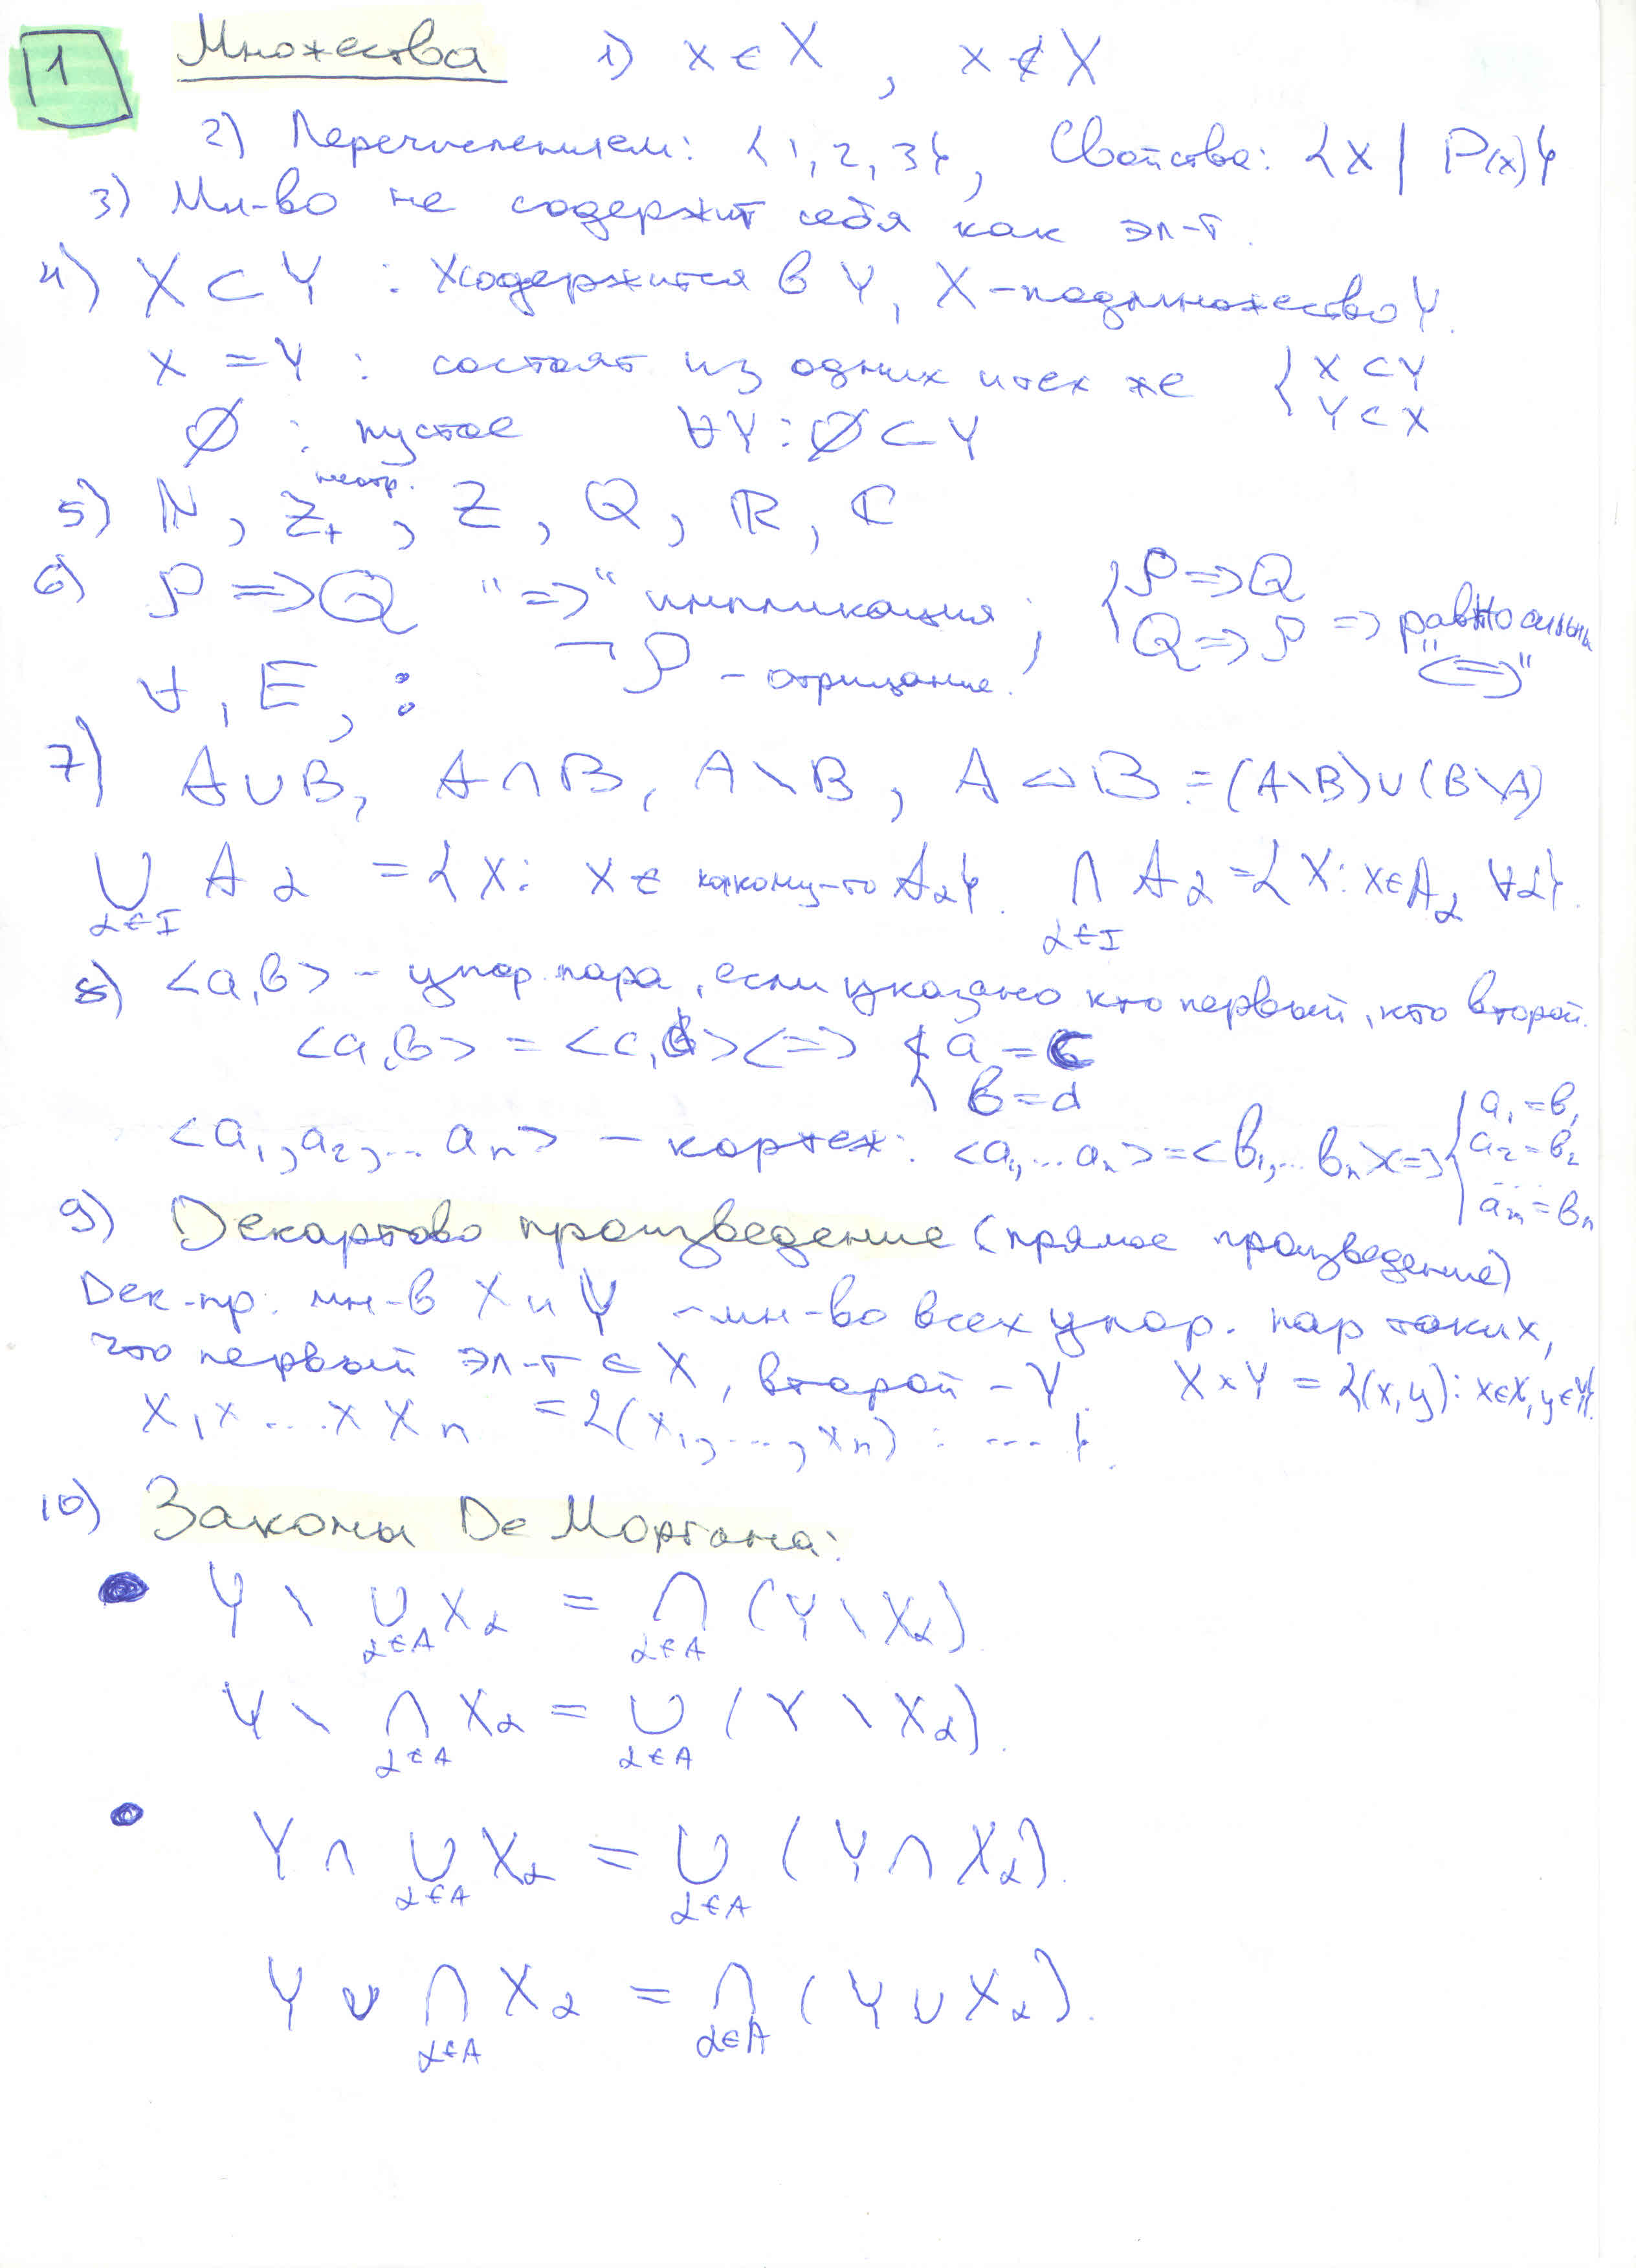 1 Множества 1) x ∈ X, x ∉ X
2) Перечислением: {1, 2, 3}, Свойства: {x | P(x)}
3) Мн-во не содержит себя как эл-т.
4) X ⊂ Y : X содержится в Y, X - подмножество Y.
X = Y : состоят из одних и тех же { X ⊂ Y
Y ⊂ X
∅ : пустое ∀Y : ∅ ⊂ Y
неотр.
5) ℕ, ℤ₊, ℤ, ℚ, ℝ, ℂ
6) P => Q "=>" импликация; { P => Q
Q => P => равносильны
"<=>"
∀, E, : ¬P - отрицание.
7) A ∪ B, A ∩ B, A \ B, A △ B = (A \ B) ∪ (B \ A)
∪ Aα = {x: x ∈ какому-то Aα}. ∩ Aα = {x: x ∈ Aα ∀α}.
α ∈ I α ∈ I
8) <a, b> - упор. пара, если указано кто первый, кто второй.
<a, b> = <c, d> <=> { a = c
b = d
<a₁, a₂, ... aₙ> - кортеж: <a₁, ... aₙ> = <b₁, ... bₙ> <=> { a₁ = b₁
a₂ = b₂
...
aₙ = bₙ
9) Декартово произведение (прямое произведение)
Дек. пр. мн-в X и Y - мн-во всех упор. пар таких,
что первый эл-т ∈ X, второй - Y. X × Y = {(x, y) : x ∈ X, y ∈ Y}.
X₁ × ... × Xₙ = {(x₁, ..., xₙ) : ... }.
10) Законы Де Моргана:
• Y \ ∪ Xα = ∩ (Y \ Xα)
α ∈ A α ∈ A
Y \ ∩ Xα = ∪ (Y \ Xα).
α ∈ A α ∈ A
• Y ∩ ∪ Xα = ∪ (Y ∩ Xα).
α ∈ A α ∈ A
Y ∪ ∩ Xα = ∩ (Y ∪ Xα).
α ∈ A α ∈ A